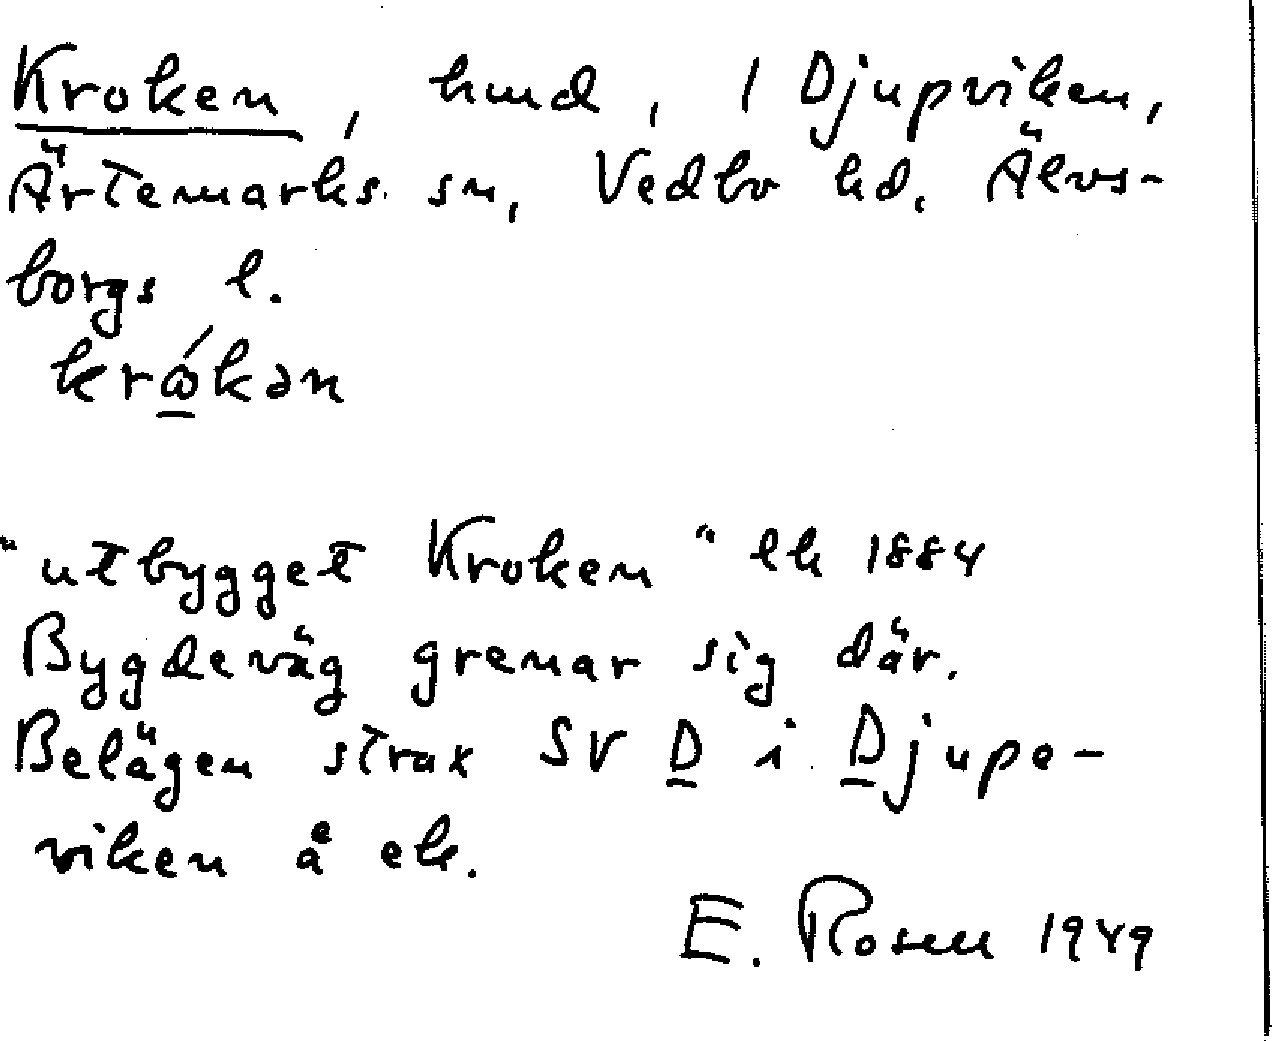 Kroken, hmd, 1 Djupviken,
Ärtemarks sn, Vedbo hd. Älvs-
borgs l.
krώ̲kən
"utbygget Kroken" lk 1884
Bygdeväg grenar sig där.
Belägen strax SV D i Djupe-
viken å ek.
E. Rosell 1949